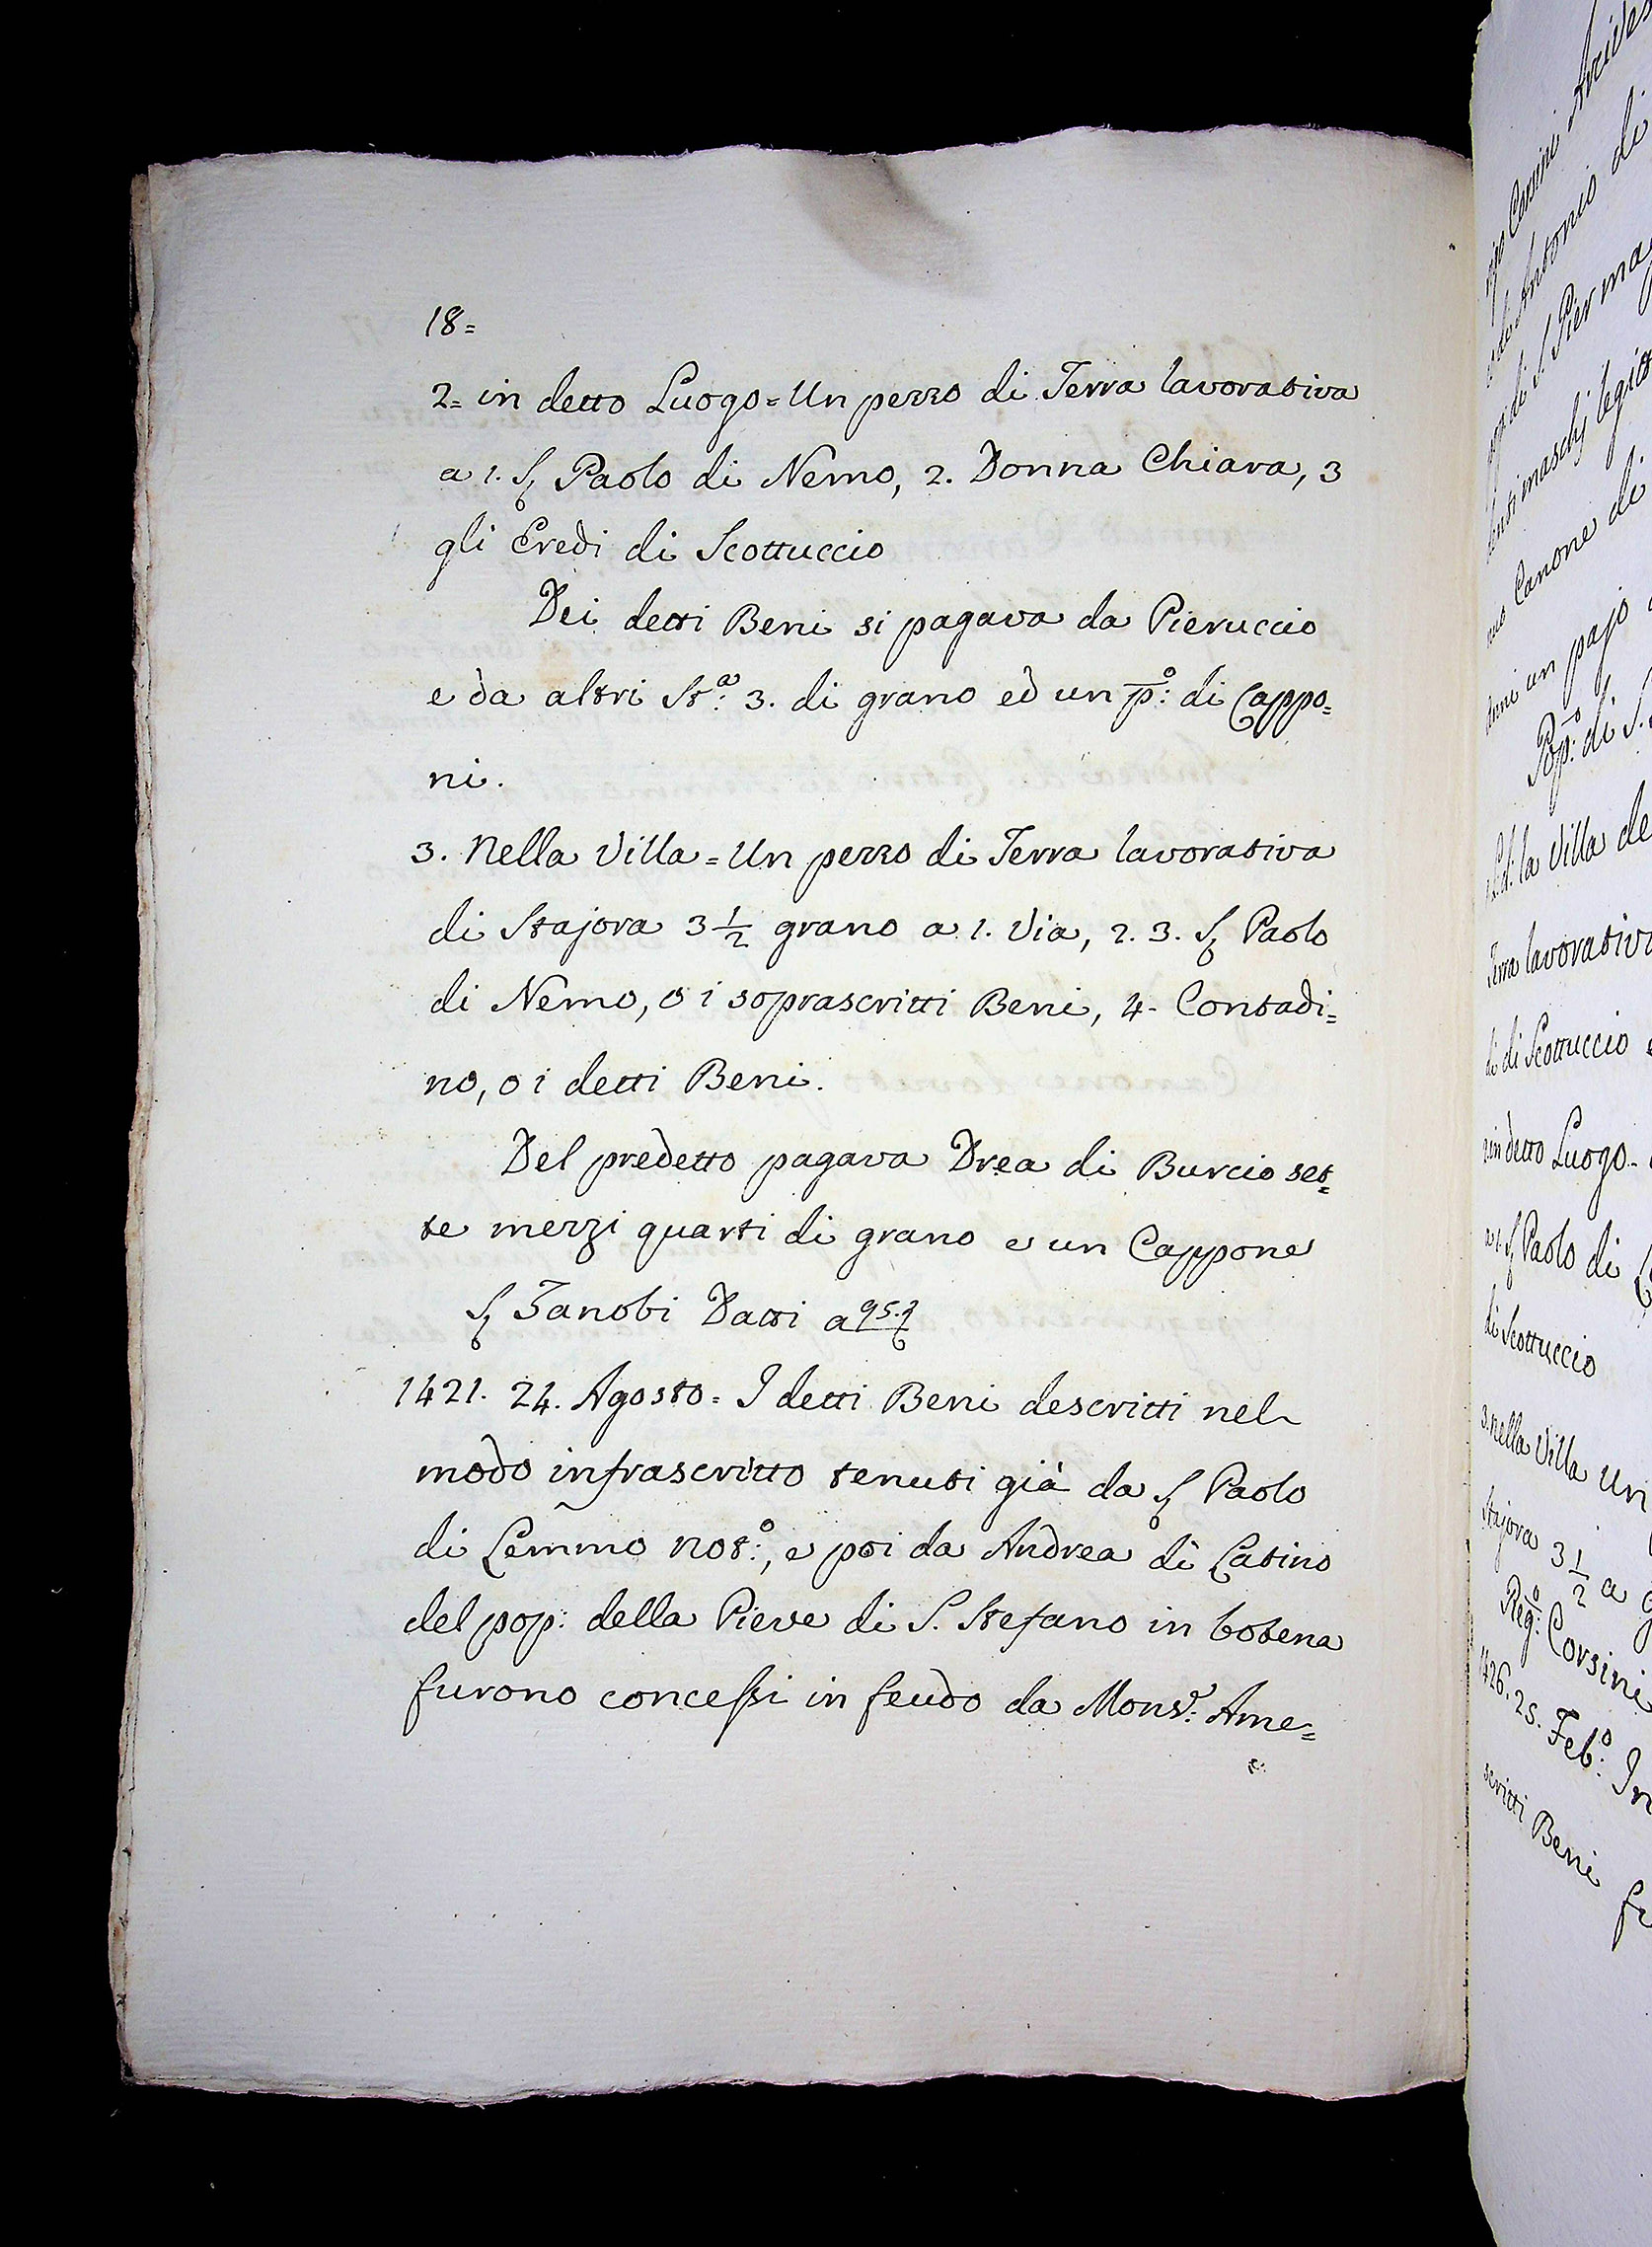 18=
2= in detto Luogo = Un pezzo di Terra lavorativa
a 1. S. Paolo di Nemo, 2. Donna Chiara, 3
gli Eredi di Scottuccio
Dei detti Beni si pagava da Pieruccio
e da altri St.ª 3. di grano ed un p.º di Cappo=
ni.
3. Nella Villa = Un pezzo di Terra lavorativa
di Stajora 3 1/2 grano a 1. Via, 2. 3. S. Paolo
di Nemo, o i soprascritti Beni, 4. Contadi=
no, o i detti Beni.
Del predetto pagava Drea di Burcio set=
te mezzi quarti di grano e un Cappone
S. Zanobi Datti a 95.
1421. 24. Agosto = I detti Beni descritti nel
modo infrascritto tenuti già da S. Paolo
di Lemmo not.º, e poi da Andrea di Catino
del pop: della Pieve di S. Stefano in botena
furono concessi in feudo da Mons.r Ame=
Canone di
un pajo
Pop.º di S.
la Villa de
Terra lavorativa
di di Scottuccio
in detto Luogo
a 1. S. Paolo di
di Scottuccio
3. Nella Villa Un
Stajora 3 1/2 a
Reg.º Corsini
1426. 25. Feb.º In
scritti Beni